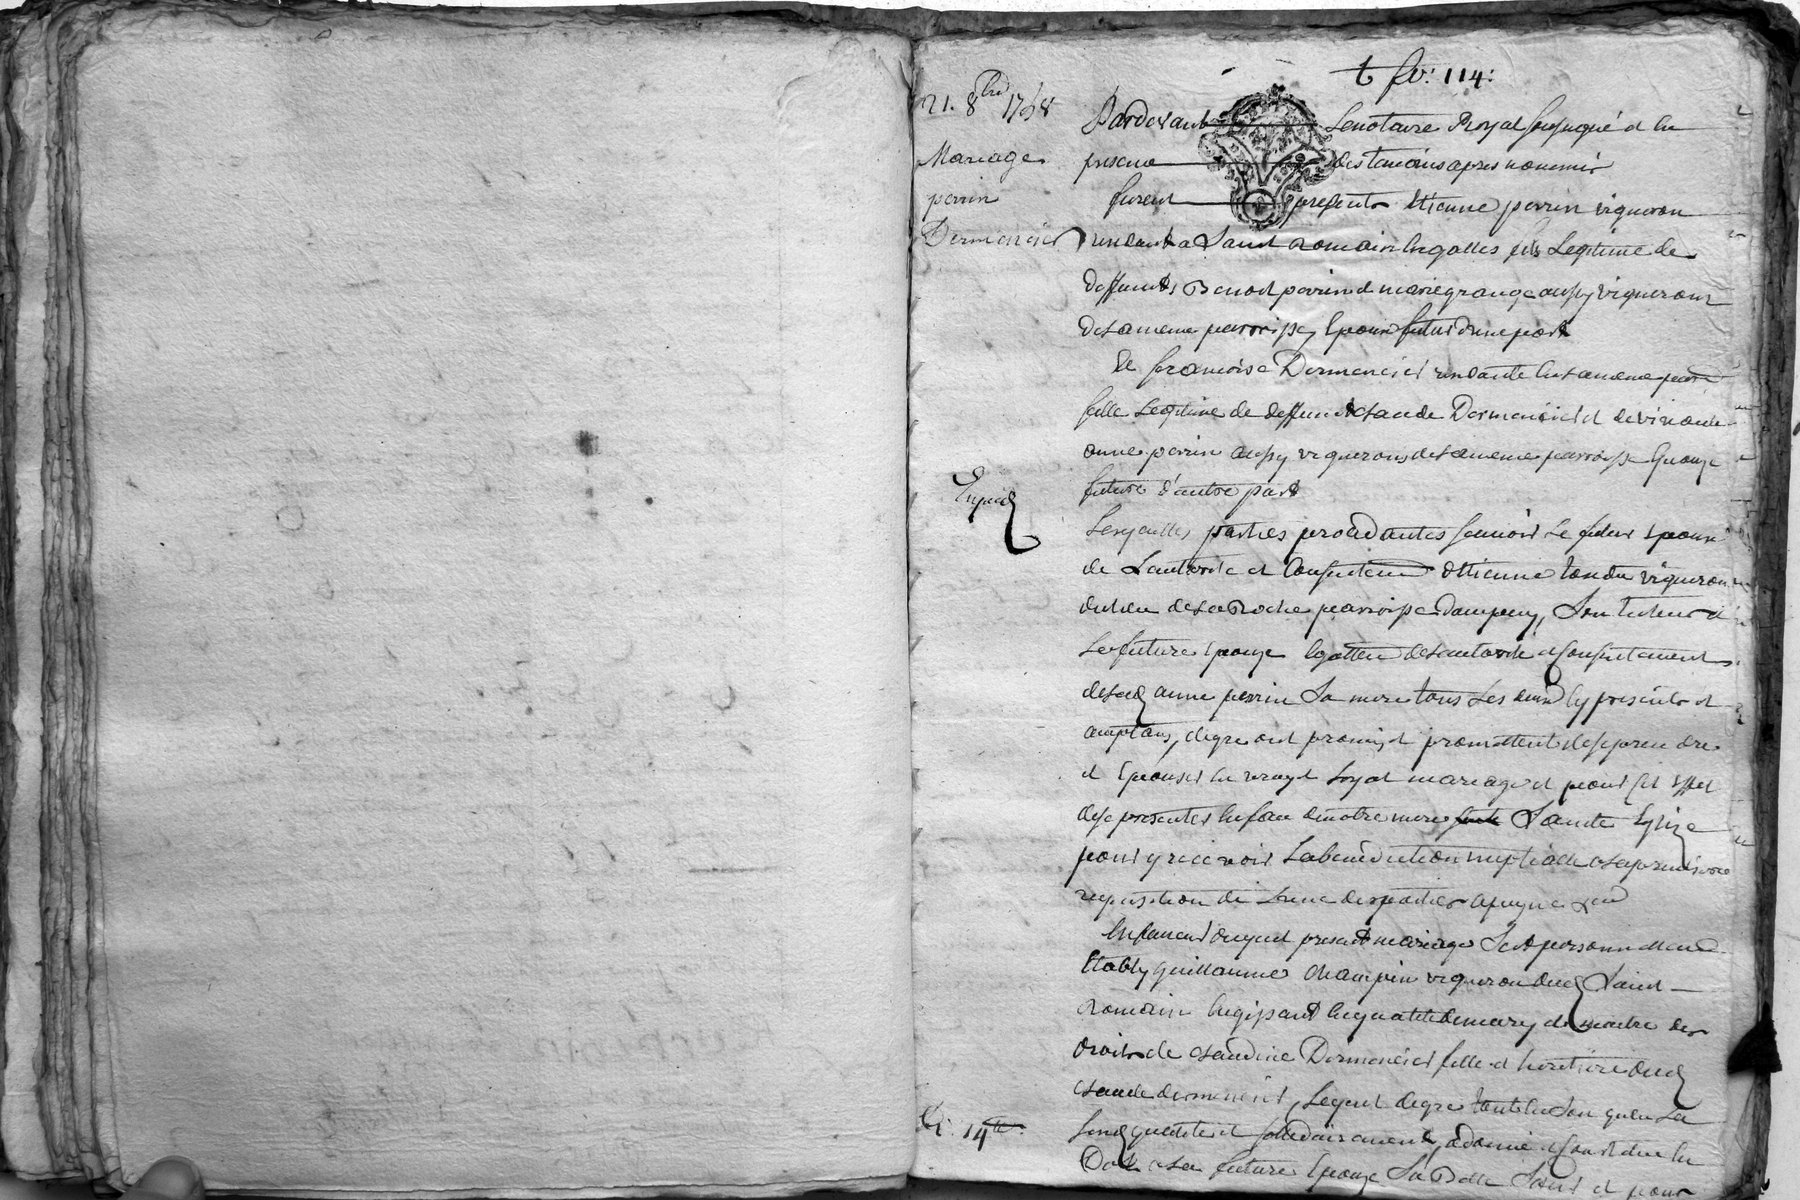 t fo: 114:
21. 8bre 1768
Mariage
perrin
Dermencier
Expedié
Pardevant Le notaire Royal soussigné et en
presence des temoins apres nommés
furent presents Etienne perrin vigneron
rendant a Saint Romain en galles fils Legitime de
deffunts Benoit perrin et marie grange aussy vignerons
de la meme parroisse, Epoux futur d'une part
Et francoise Dermencier rendante en la meme parr
fille Legitime de deffunt Claude Dermencier et de vivante
anne perrin aussy vignerons de la meme parroisse Epouze
future d'autre part
Lesquelles parties procedantes scavoir Le futur Epoux
de L'autorité et Consentement d'Etienne vigneron
du lieu de La Roche parroisse d'ampuy, Son tuteur et
La future Epouze Egallem de L'autorité et Consentement
de lad anne perrin Sa mere tous Les deux Cy presents et
acceptans, de gré ont promis et promettent de se prendre
et Epouser en vray et Loyal mariage et pour cet Effet
de se presenter en face de notre mere Sainte Eglize
pour y recevoir La benediction nuptialle a la premiere
requisition de L'une des parties a peyne &ca
En faveur duquel present mariage S'est personnellem
Etably Guillaume Champin vigneron dud Saint
Romain En gissant En qualité de mary et maitre des
droits de Claudine Dermencier fille et heritiere dud
Claude dermencier, Lequel de gré tant en Son qu'en La
susd qualité et solidairement, a donné et Constitué en
Dot a La future Epouze Sa Belle Soeur et pour
Ct. 14 tt.